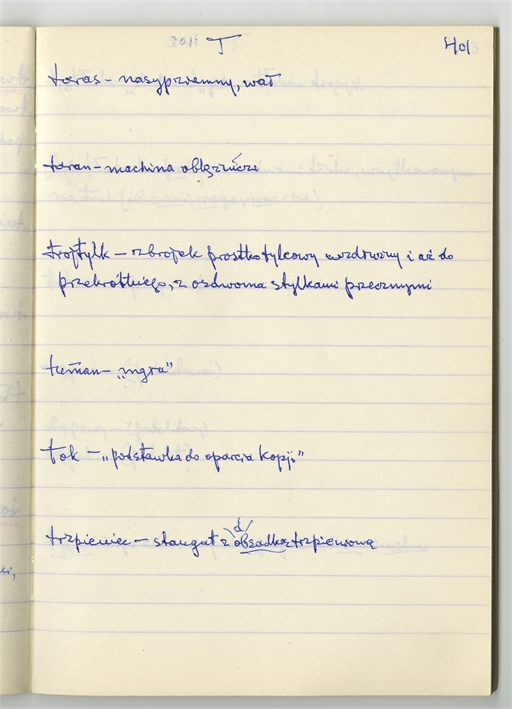 T 401
taras – nasyp ziemny, wał
taran – machina oblężnicza
trójtylk – zbrojek prostkotylcowy i aż do
z osdwoma stylkami przecznymi
tuman – „mgła”
tok – „podstawka do oparcia kopji”
trzpieniec – z obsadką trzpieniową